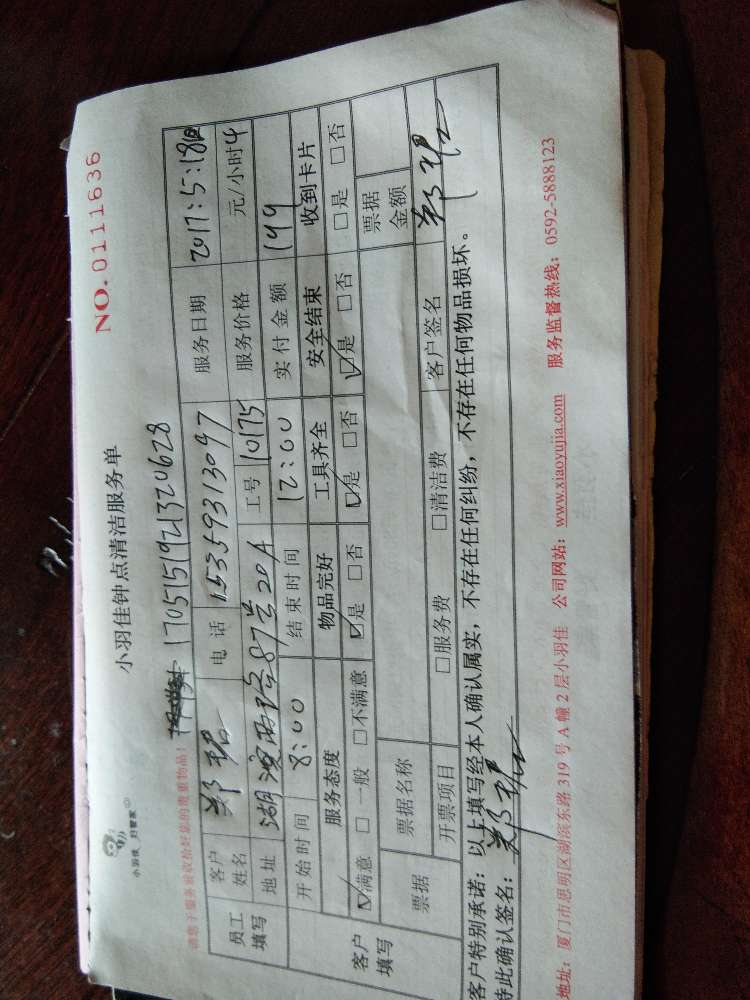 小羽佳 好管家
小羽佳钟点清洁服务单 NO.0111636
请您于服务前收拾好您的贵重物品! 1705151921320628
员工填写 客户姓名 电话 15359313097 服务日期 2017:5:18日
地址 湖滨西路87号20A 工号 10175 服务价格 元/小时 4
开始时间 8:00 结束时间 12:00 实付金额 144
客户填写 服务态度 物品完好 工具齐全 安全结束 收到卡片
☑满意 □一般 □不满意 ☑是 □否 ☑是 □否 ☑是 □否 □是 □否
票据 票据名称 票据金额
开票项目 □服务费 □清洁费 客户签名
客户特别承诺:以上填写经本人确认属实,不存在任何纠纷,不存在任何物品损坏。
特此确认签名:
地址:厦门市思明区湖滨东路319号A幢2层小羽佳 公司网站:www.xiaoyujia.com 服务监督热线:0592-5888123